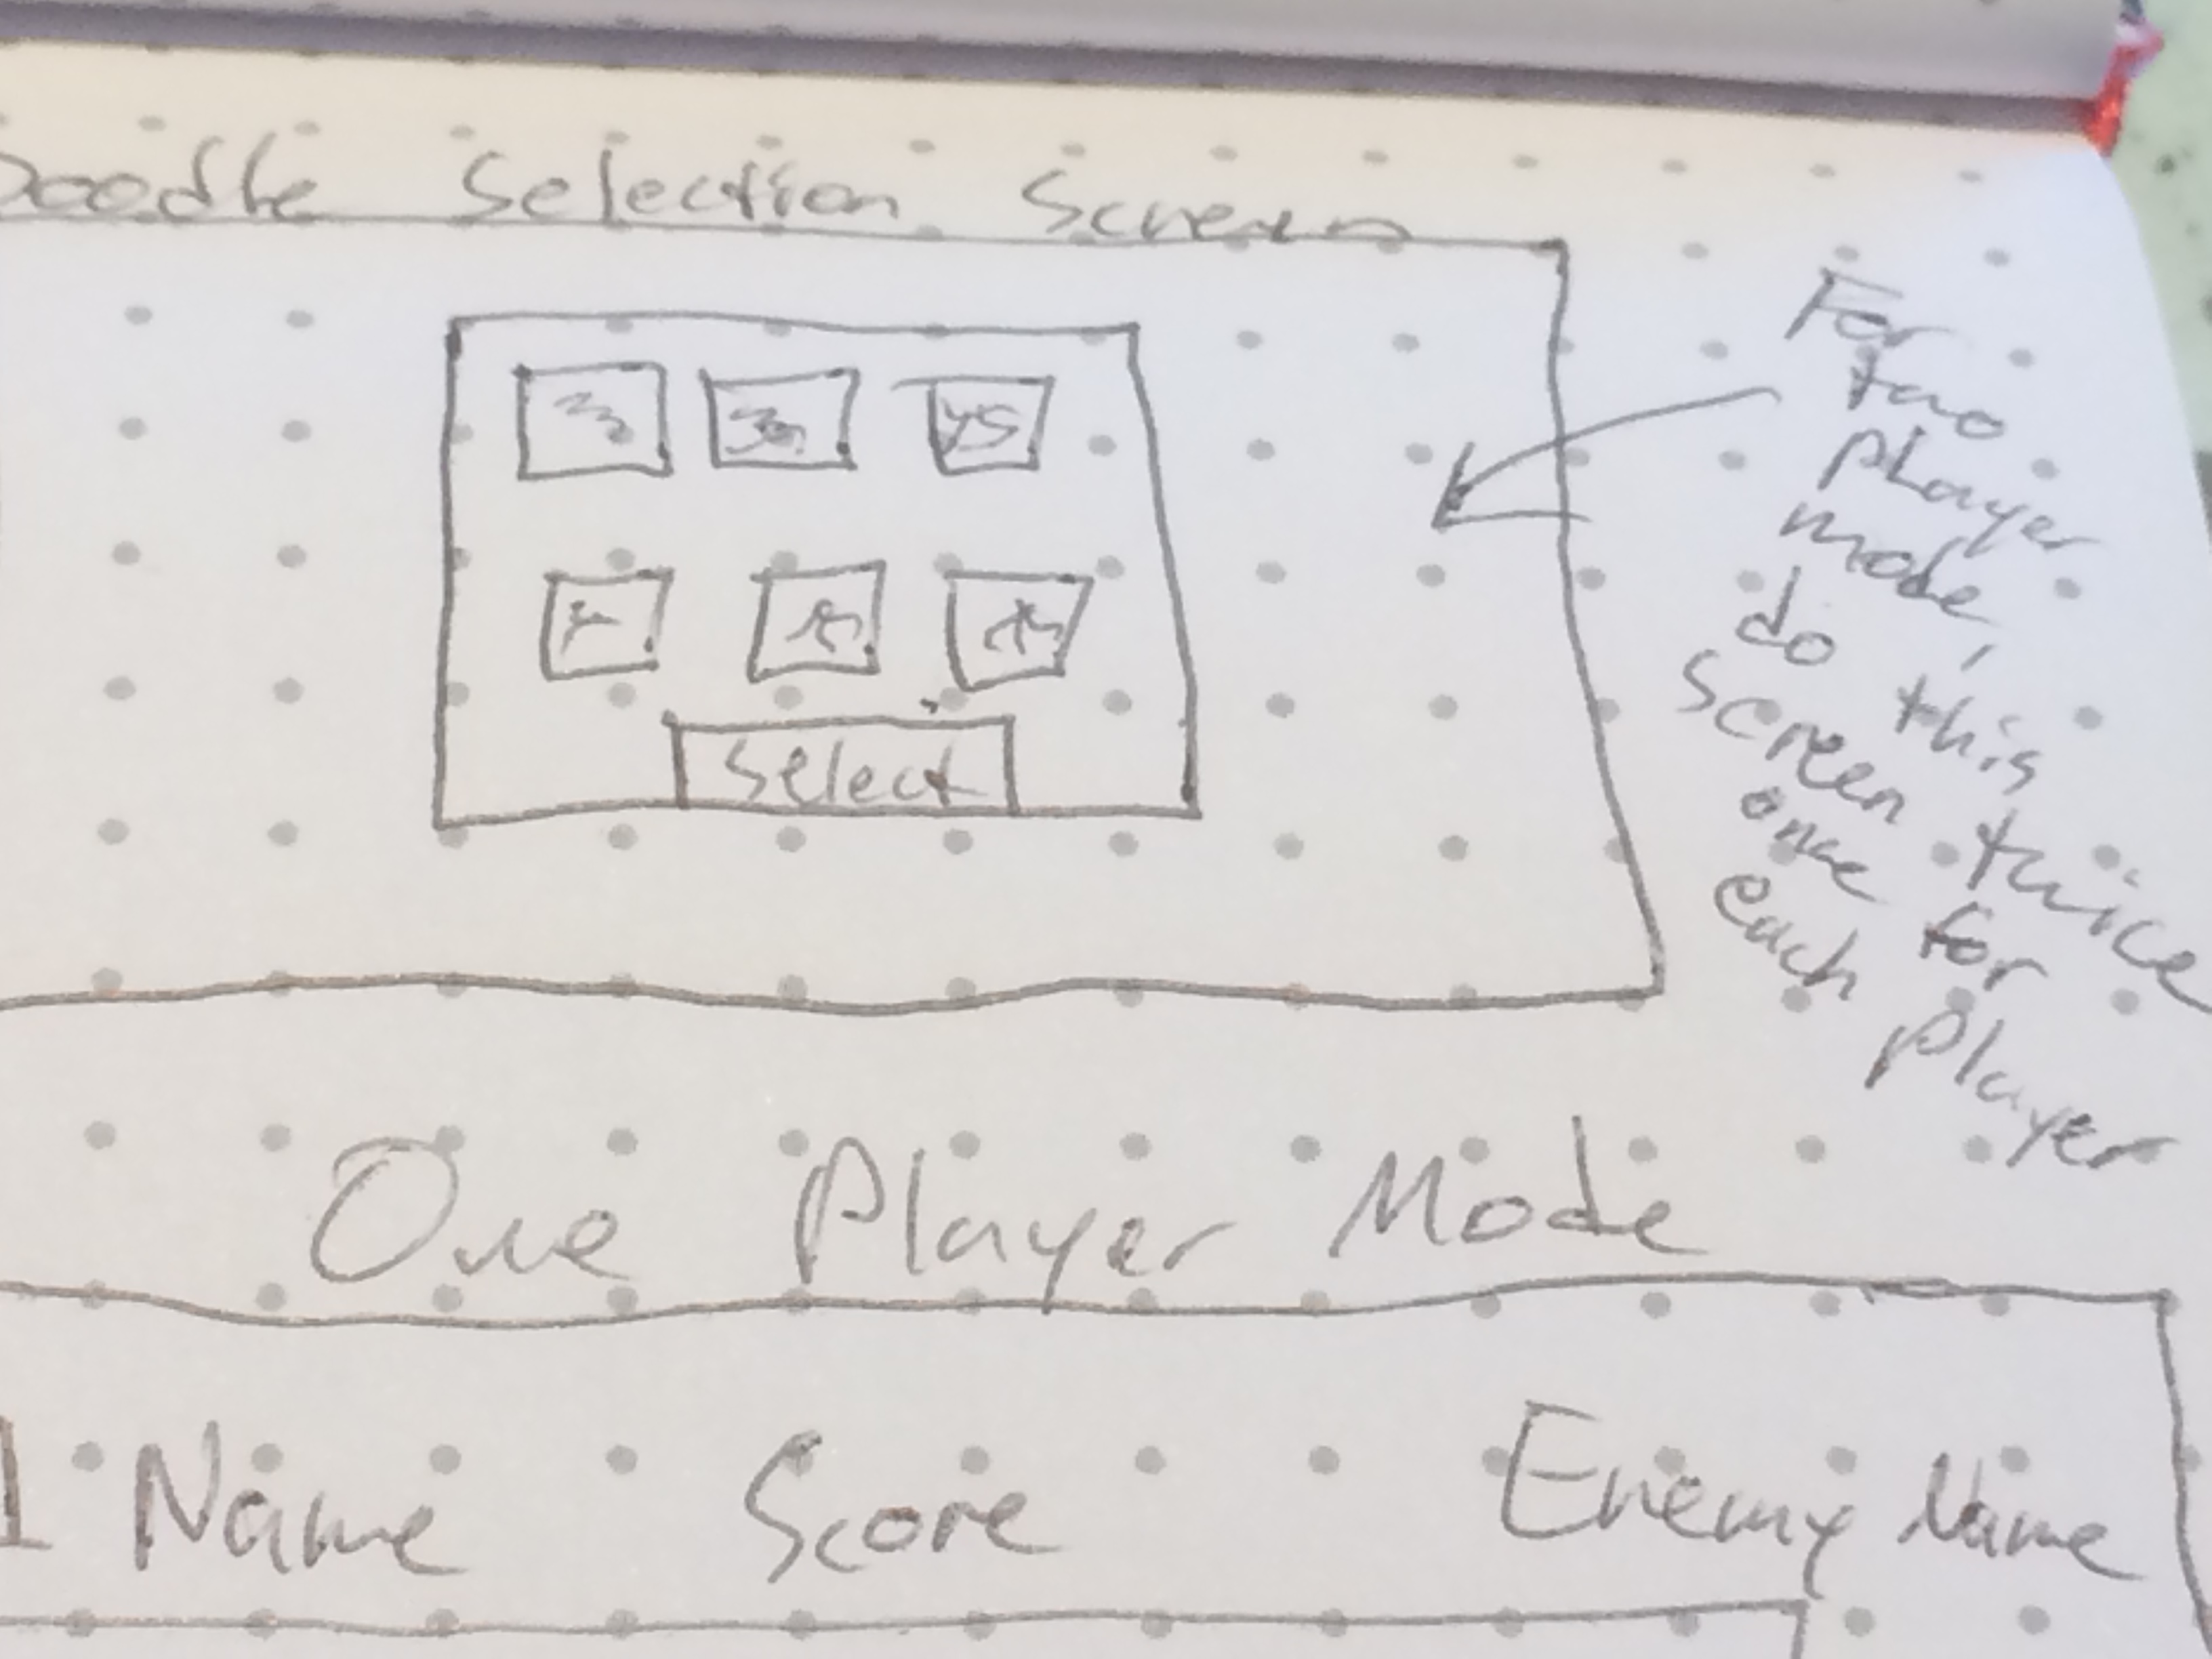 Doodle Selection Screen
For
two
player
mode,
do this
screen twice
one for
each player
Select
One Player Mode
Name Score Enemy Name